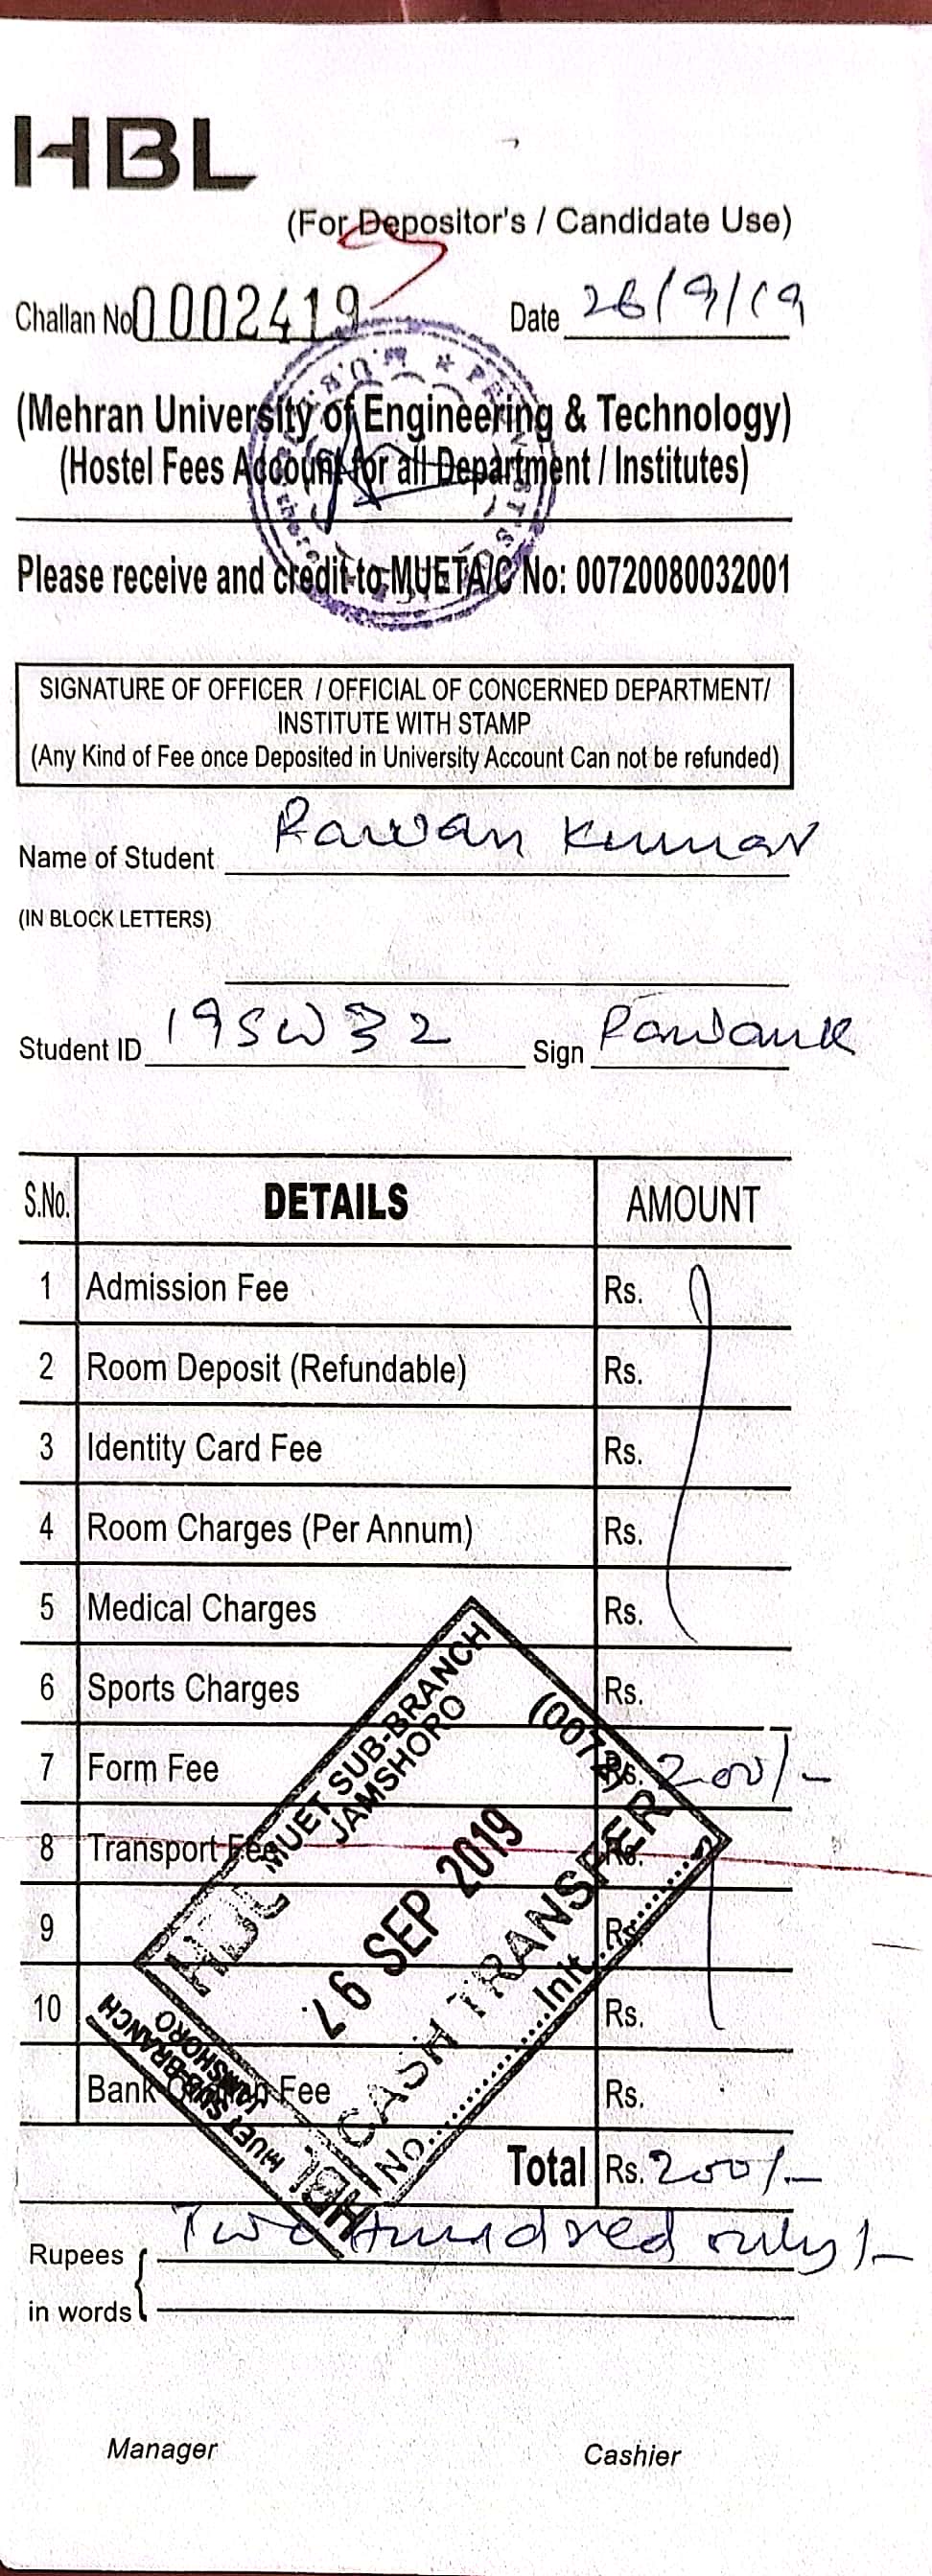 HBL
(For Depositor's / Candidate Use)
Challan No 0002419 Date 26/9/19
(Mehran University of Engineering & Technology)
(Hostel Fees Account for all Department / Institutes)
Please receive and credit to MUET A/C No: 00720080032001
SIGNATURE OF OFFICER / OFFICIAL OF CONCERNED DEPARTMENT/
INSTITUTE WITH STAMP
(Any Kind of Fee once Deposited in University Account Can not be refunded)
Name of Student Rawan Kumar
(IN BLOCK LETTERS)
Student ID 19SW32 Sign
S.No. DETAILS AMOUNT
1 Admission Fee Rs.
2 Room Deposit (Refundable) Rs.
3 Identity Card Fee Rs.
4 Room Charges (Per Annum) Rs.
5 Medical Charges Rs.
6 Sports Charges Rs.
7 Form Fee Rs. 200/-
8 Transport Fee Rs.
9 Rs.
10 Rs.
Bank Fee Rs.
Total Rs. 200/-
Rupees Two Hundred only/-
in words
Manager Cashier
HBL MUET SUB-BRANCH
JAMSHORO
(0072)
26 SEP 2019
CASH TRANSFER
No. Init.
HBL MUET SUB-BRANCH
JAMSHORO